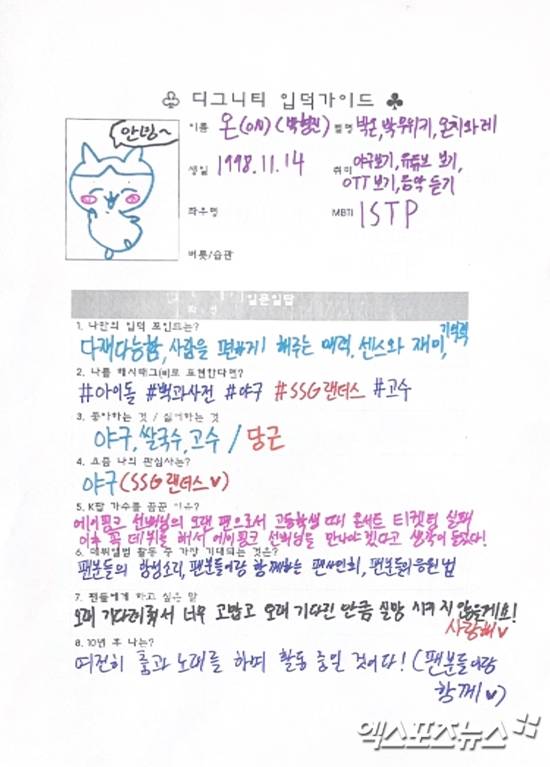 ♧ 디그니티 입덕가이드 ♣
안녕~
이름 온(ON)(박형진) 별명 박온, 박무위키, 온치와레
생일 1998.11.14 취미 야구보기, 유튜브 보기,
OTT 보기, 음악 듣기
좌우명 MBTI ISTP
버릇/습관
일문일답
1. 나만의 입덕 포인트는?
다재다능함, 사람을 편하게 해주는 매력, 센스와 재미, 기억력
2. 나를 해시태그(#)로 표현한다면?
#아이돌 #백과사전 #야구 #SSG랜더스 #고수
3. 좋아하는 것 / 싫어하는 것
야구, 쌀국수, 고수 / 당근
4. 요즘 나의 관심사는?
야구(SSG랜더스♥)
5. K팝 가수를 꿈꾼 이유?
에이핑크 선배님의 오랜 팬으로서 고등학생 때 콘서트 티켓팅 실패
이후 꼭 데뷔를 해서 에이핑크 선배님들 만나야겠다고 생각이 들었다!
6. 데뷔앨범 활동 중 가장 기대되는 것은?
팬분들의 함성소리, 팬분들이랑 함께하는 팬사인회, 팬분들의 응원법
7. 팬들에게 하고 싶은 말
오래 기다려줘서 너무 고맙고 오래 기다린 만큼 실망 시키지 않을게요!
사랑해♥
8. 10년 후 나는?
여전히 춤과 노래를 하며 활동 중일 것이다! (팬분들이랑
함께♥)
엑스포츠뉴스